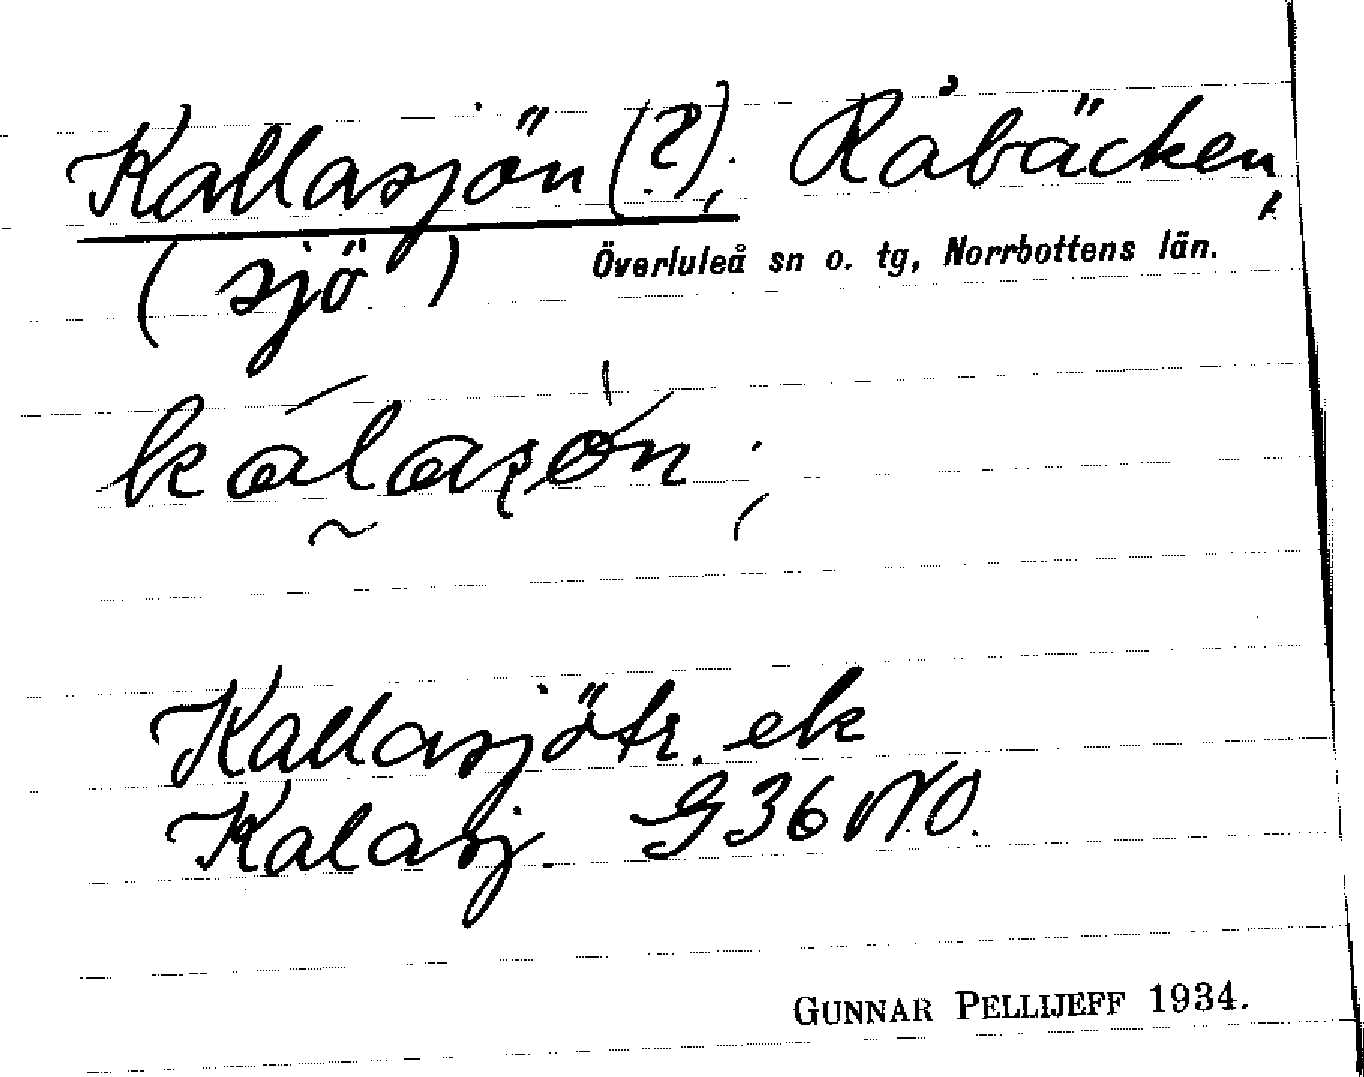 Kallasjön (?), Råbäcken,
(sjö) Överluleå sn o. tg, Norrbottens län.
Kallasjötr. ek
Kalasj. G36 NO.
GUNNAR PELLIJEFF 1934.